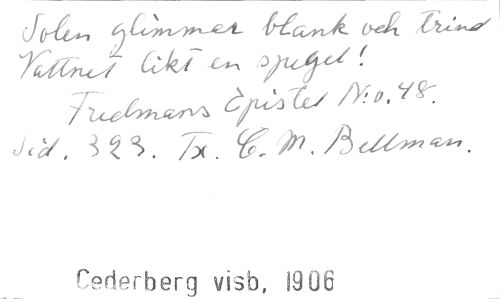 Solen glimmer blank och trind
Vattnet likt en spegel!
Fredmans Epistel N:o. 48.
Sid. 323. Tx. C. M. Bellman.
Cederberg visb, 1906